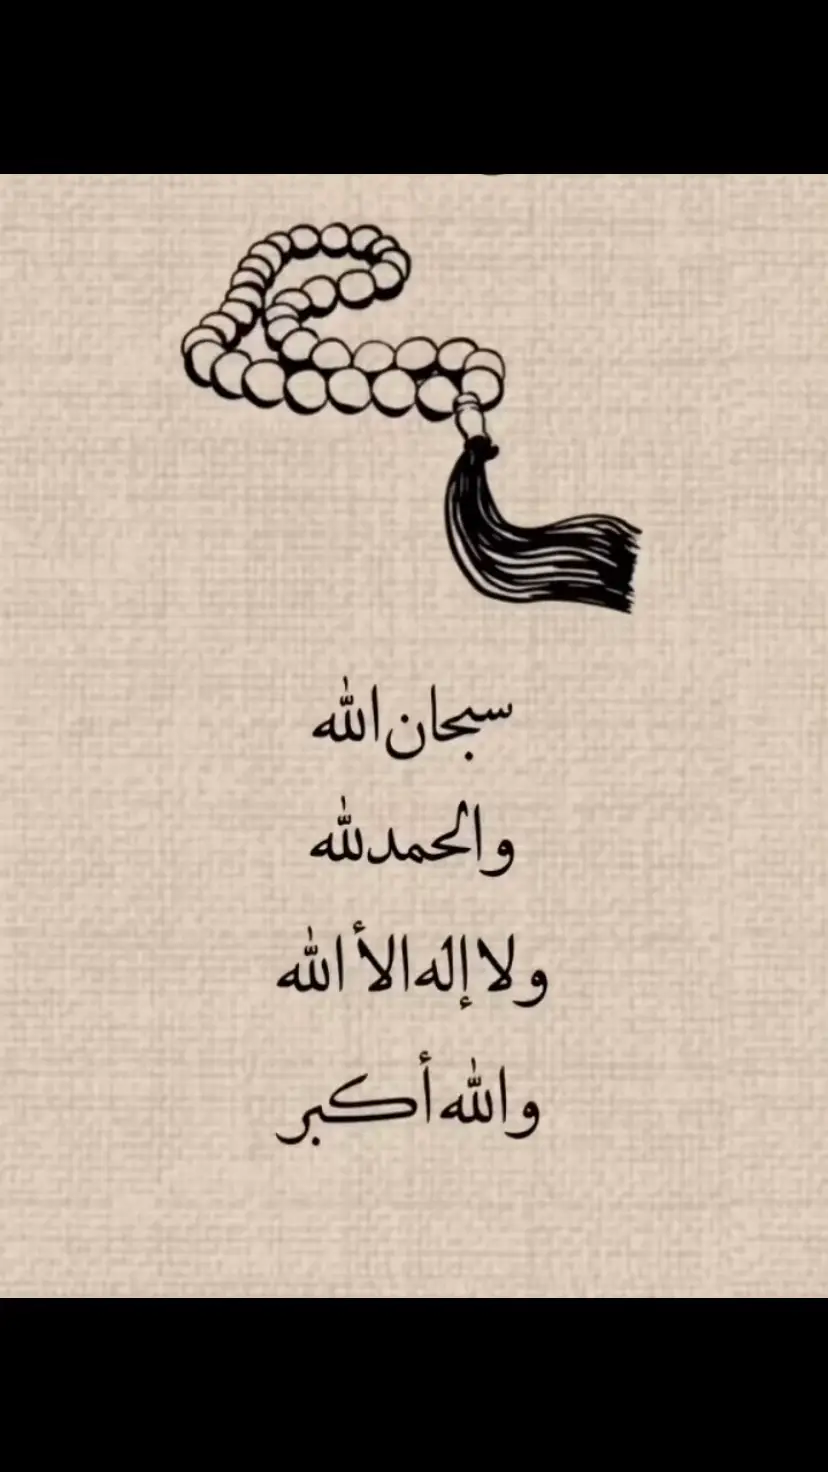 سبحان الله
والحمدلله
ولا إله الأ الله
والله أكبر